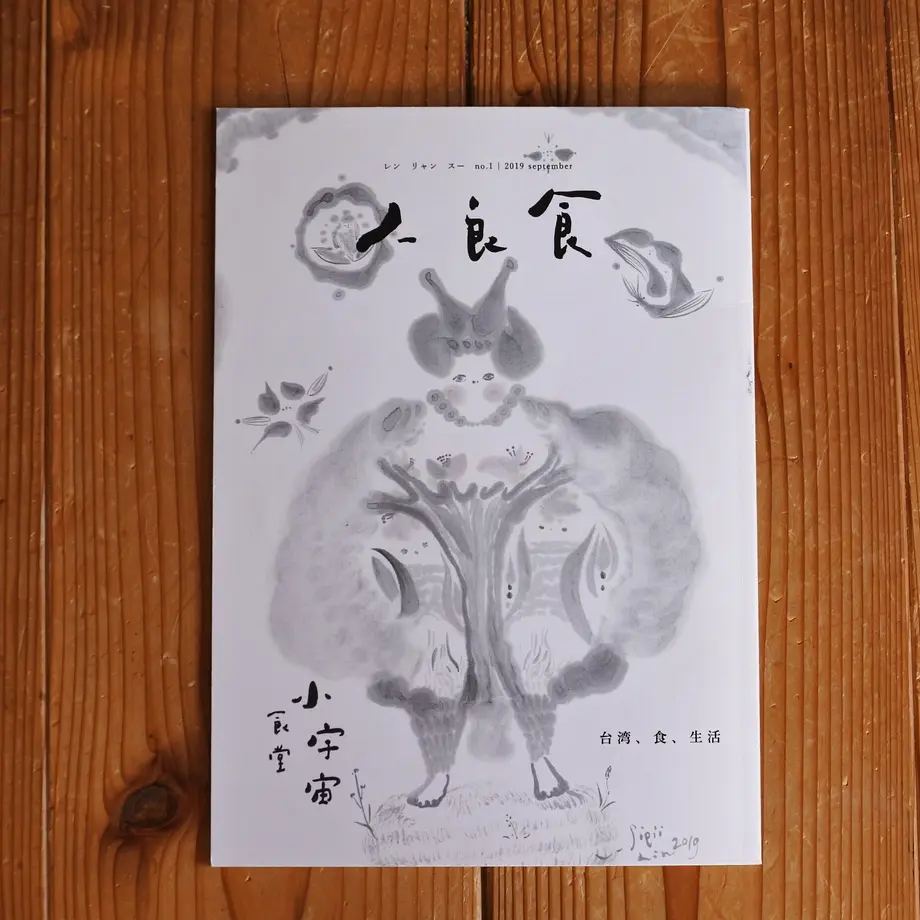 レン リャン スー no.1 | 2019 september
人 良 食
小宇宙
食堂
台湾、食、生活
2019